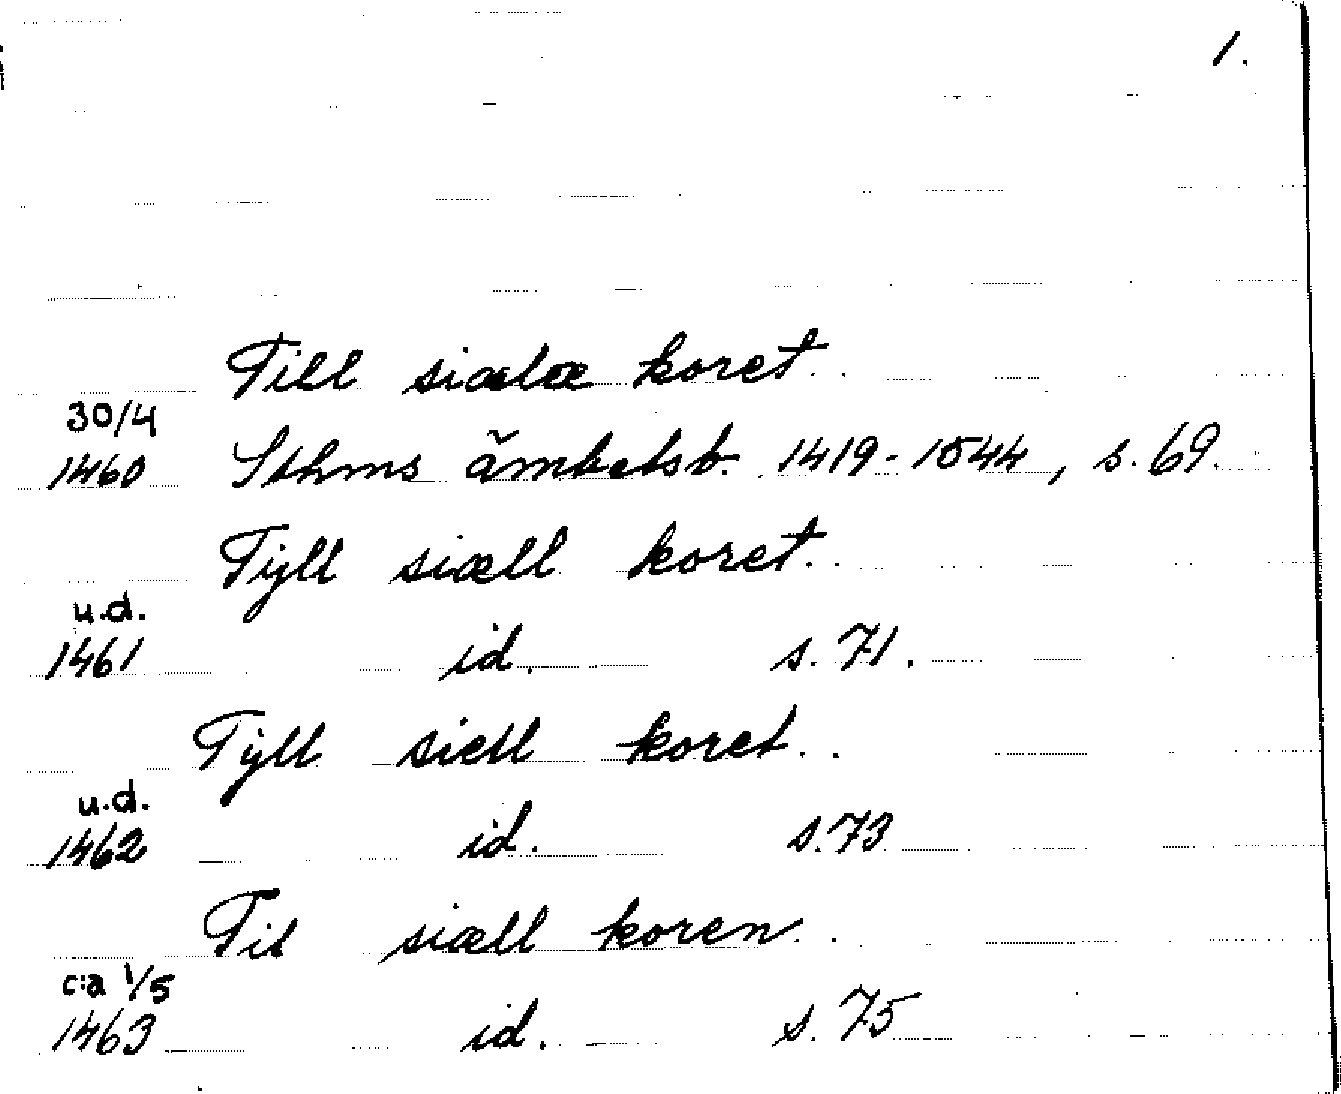 1.
Till siælæ koret.
30/4
1460 Sthms ämbetsb. 1419-1544, s. 69.
Tÿll siæll koret.
u.d.
1461 id. s. 71.
Tÿll siell koret.
u.d.
1462 id. s. 73
Til siæll koren.
c:a 1/5
1463 id. s. 75